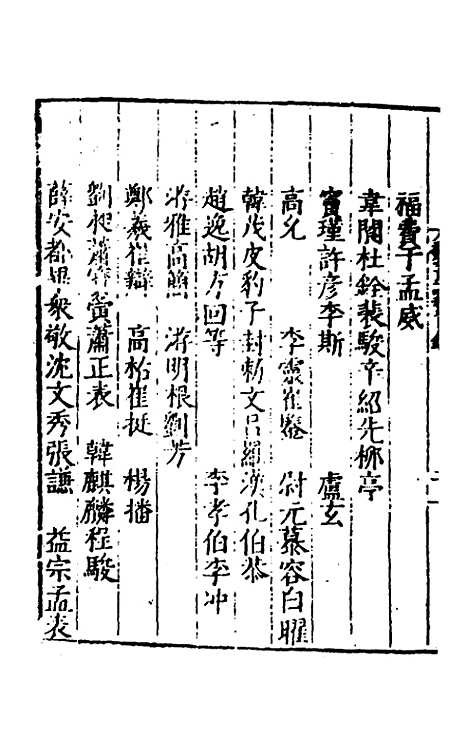 福費于孟威
韋閬杜銓裴駿辛紹先柳亭
竇瑾許彥李斯 盧玄
高允 李靈崔鑒 尉元慕容白曜
韓茂皮豹子封勑文呂羅漢孔伯恭
趙逸胡方回等 李孝伯李冲
游雅高閭 游明根劉芳
鄭羲崔辯 高祐崔挺 楊播
劉昶蕭寶夤蕭正表 韓麒麟程駿
薛安都畢衆敬沈文秀張讜 益宗孟表